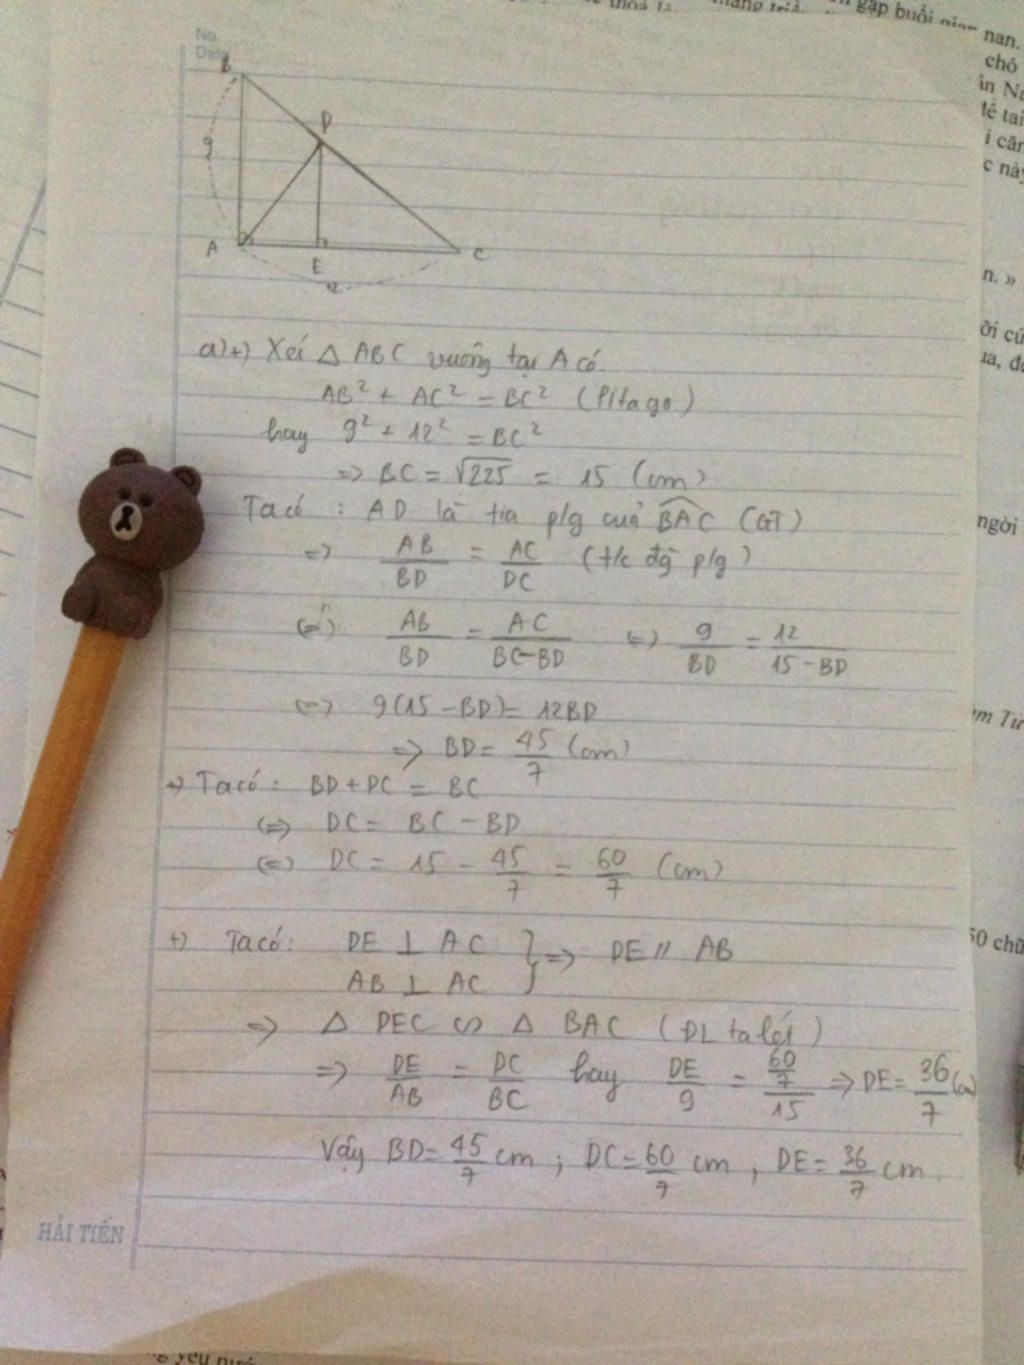 No.
Date
B
D
9
A
E
C
12
a) +) Xét △ ABC vuông tại A có.
AB² + AC² = BC² (Pitago)
hay 9² + 12² = BC²
=> BC = √225 = 15 (cm)
Ta có : AD là tia p/g của BAC (GT)
=> AB/BD = AC/DC (t/c đg p/g)
<=> AB/BD = AC/BC-BD <=> 9/BD = 12/15-BD
<=> 9(15-BD) = 12BD
=> BD = 45/7 (cm)
+) Ta có : BD + DC = BC
<=> DC = BC - BD
<=> DC = 15 - 45/7 = 60/7 (cm)
+) Ta có: DE ⊥ AC } => DE // AB
AB ⊥ AC
=> △ DEC ∽ △ BAC (ĐL ta lét)
=> DE/AB = DC/BC hay DE/9 = 60/7/15 => DE = 36/7 (cm)
Vậy BD = 45/7 cm ; DC = 60/7 cm , DE = 36/7 cm.
HẢI TIẾN
gặp buổi gian nan.
chó
n. »
ngời
50 chữ